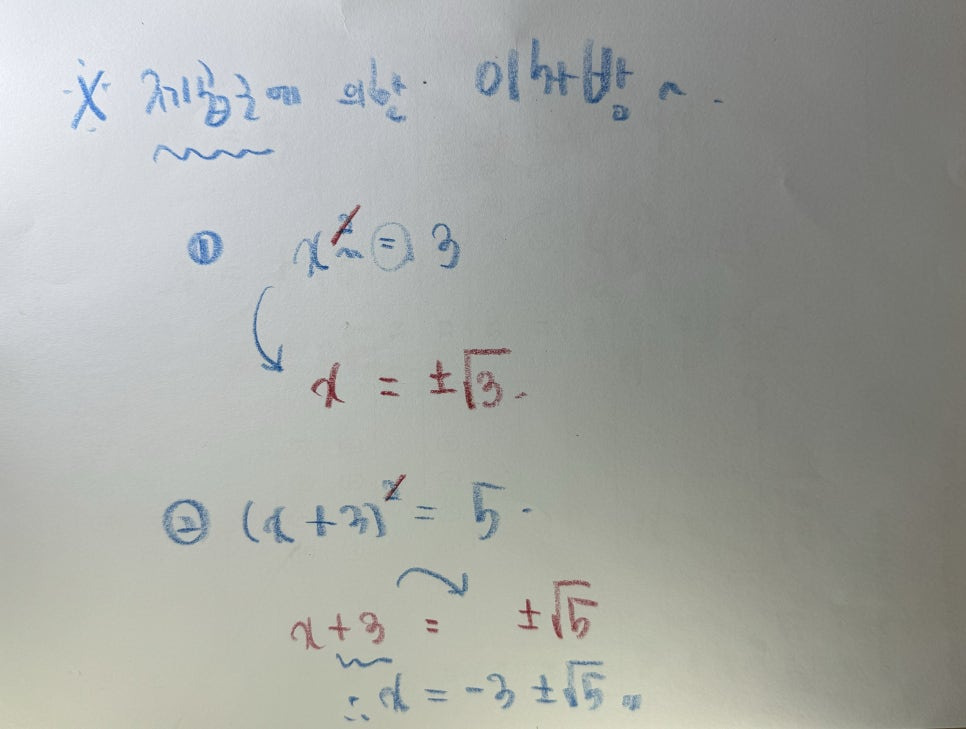 ※ 제곱근에 의한 이차방~.
① x² = 3
x = ±√3.
② (x+3)² = 5.
x+3 = ±√5
∴ x = -3 ±√5 〃